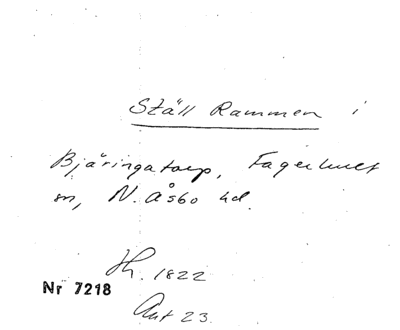 Ställ Rammen i
Bjäringatorp, Fagerhult
sn, N. Åsbo hd.
1822
Nr 7218
23.